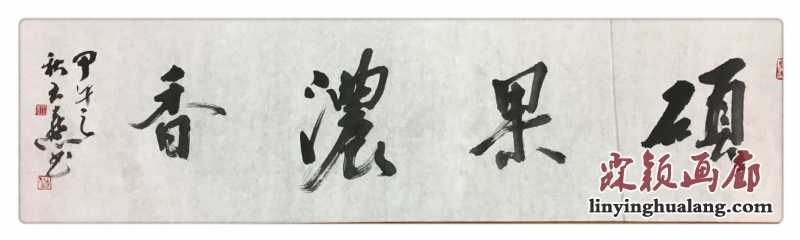 碩果濃香
甲午之
秋大森书
霖颖画廊
linyinghualang.com